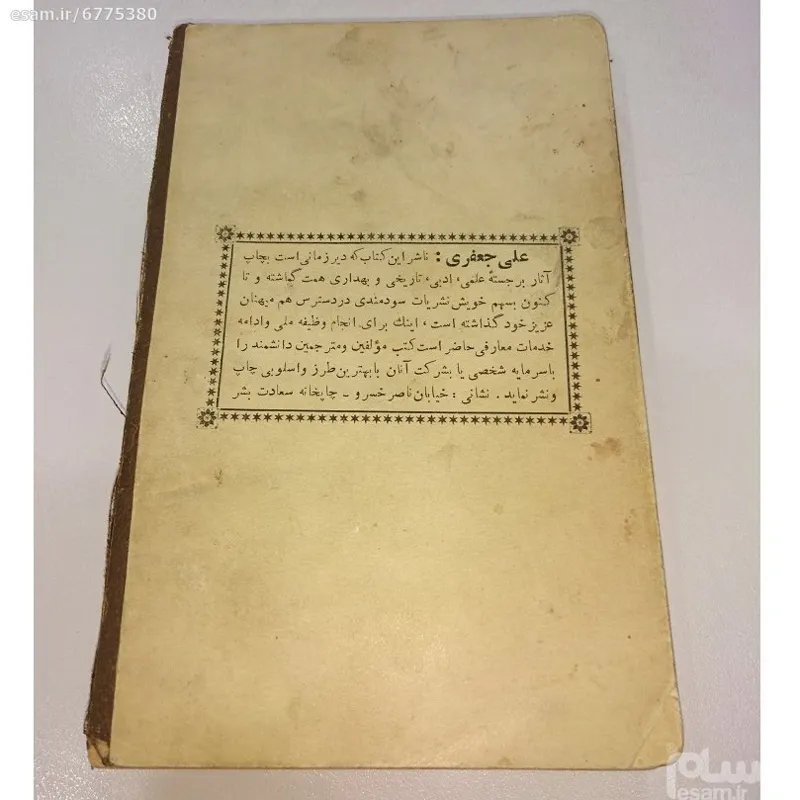 esam.ir/6775380
علی جعفری : ناشر این کتاب که دیر زمانی است بچاپ
آثار برجستهٔ علمی، ادبی، تاریخی و بهداری همت گماشته و تا
کنون بسهم خویش نشریات سودمندی در دسترس هم میهنان
عزیز خود گذاشته است، اینك برای انجام وظیفه ملی وادامه
خدمات معارفی حاضر است کتب مؤلفین ومترجمین دانشمند را
باسرمایه شخصی یا بشرکت آنان بابهترین طرز واسلوبی چاپ
ونشر نماید. نشانی : خیابان ناصر خسرو ـ چاپخانه سعادت بشر
esam.ir